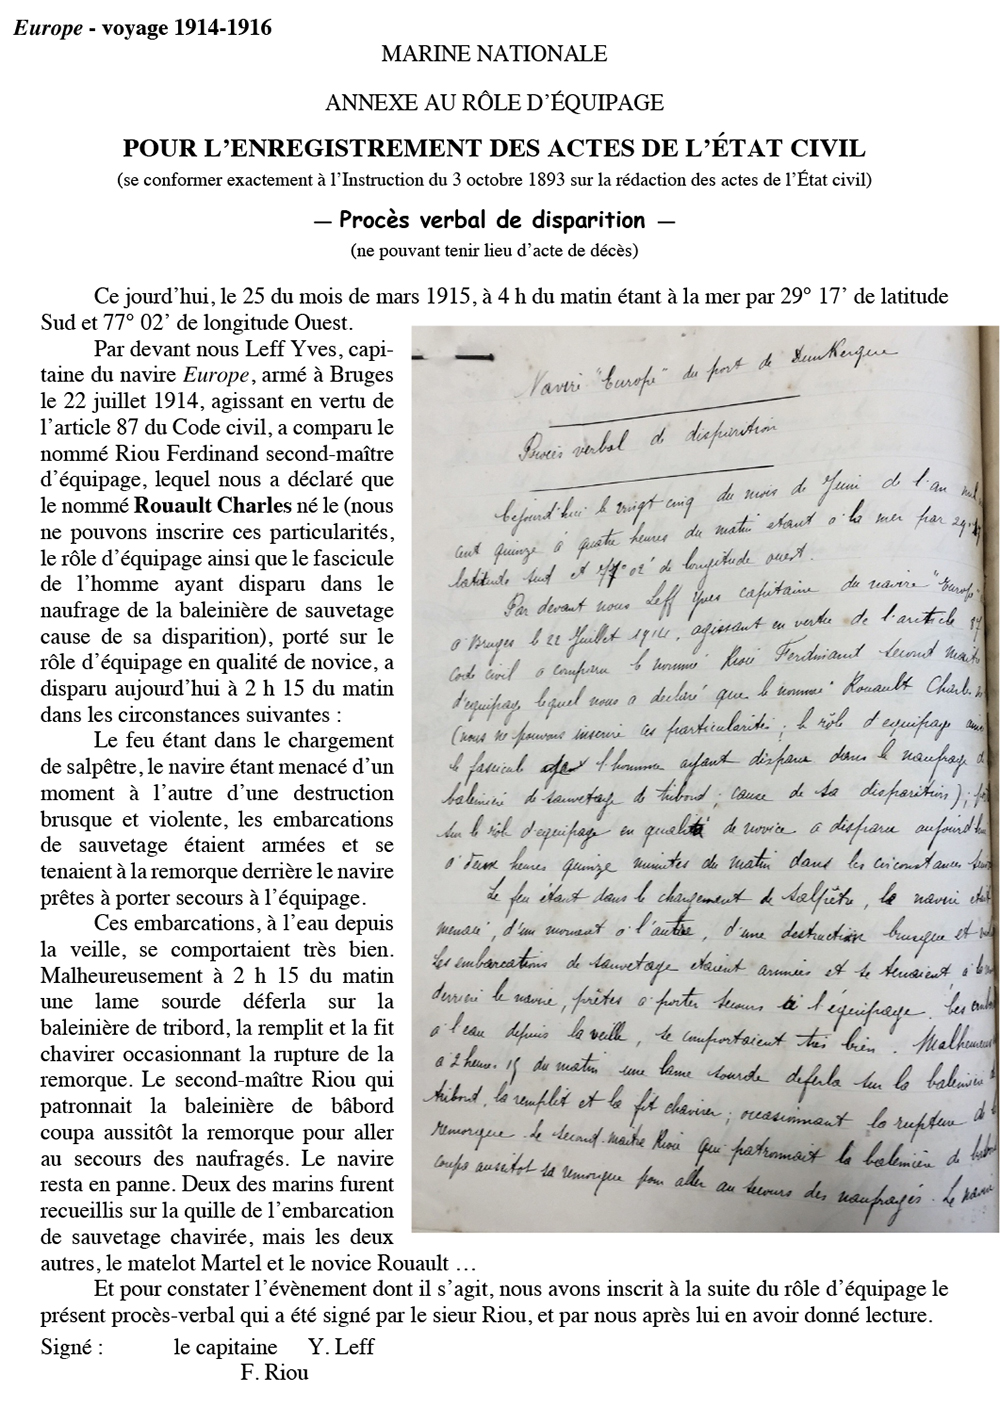 Europe - voyage 1914-1916
MARINE NATIONALE
ANNEXE AU RÔLE D’ÉQUIPAGE
POUR L’ENREGISTREMENT DES ACTES DE L’ÉTAT CIVIL
(se conformer exactement à l’Instruction du 3 octobre 1893 sur la rédaction des actes de l’État civil)
— Procès verbal de disparition —
(ne pouvant tenir lieu d’acte de décès)
Ce jourd’hui, le 25 du mois de mars 1915, à 4 h du matin étant à la mer par 29° 17’ de latitude
Sud et 77° 02’ de longitude Ouest.
Par devant nous Leff Yves, capi-
taine du navire Europe, armé à Bruges
le 22 juillet 1914, agissant en vertu de
l’article 87 du Code civil, a comparu le
nommé Riou Ferdinand second-maître
d’équipage, lequel nous a déclaré que
le nommé Rouault Charles né le (nous
ne pouvons inscrire ces particularités,
le rôle d’équipage ainsi que le fascicule
de l’homme ayant disparu dans le
naufrage de la baleinière de sauvetage
cause de sa disparition), porté sur le
rôle d’équipage en qualité de novice, a
disparu aujourd’hui à 2 h 15 du matin
dans les circonstances suivantes :
Le feu étant dans le chargement
de salpêtre, le navire étant menacé d’un
moment à l’autre d’une destruction
brusque et violente, les embarcations
de sauvetage étaient armées et se
tenaient à la remorque derrière le navire
prêtes à porter secours à l’équipage.
Ces embarcations, à l’eau depuis
la veille, se comportaient très bien.
Malheureusement à 2 h 15 du matin
une lame sourde déferla sur la
baleinière de tribord, la remplit et la fit
chavirer occasionnant la rupture de la
remorque. Le second-maître Riou qui
patronnait la baleinière de bâbord
coupa aussitôt la remorque pour aller
au secours des naufragés. Le navire
resta en panne. Deux des marins furent
recueillis sur la quille de l’embarcation
de sauvetage chavirée, mais les deux
autres, le matelot Martel et le novice Rouault …
Et pour constater l’évènement dont il s’agit, nous avons inscrit à la suite du rôle d’équipage le
présent procès-verbal qui a été signé par le sieur Riou, et par nous après lui en avoir donné lecture.
Signé : le capitaine Y. Leff
F. Riou
Navire "Europe" du port de Dunkerque
Procès verbal de disparition
Cejourd'hui le vingt cinq du mois de Juin de l'an mil
cent quinze à quatre heures du matin étant à la mer par 29°
latitude sud et 77° 02' de longitude ouest.
Par devant nous Leff Yves capitaine du navire "Europe"
à Bruges le 22 Juillet 1914, agissant en vertu de l'article 87
Code civil a comparu le nommé Riou Ferdinand second maître
d'équipage lequel nous a déclaré que le nommé Rouault Charles
(nous ne pouvons inscrire ces particularités ; le rôle d'équipage
le fascicule l'homme ayant disparu dans le naufrage
baleinière de sauvetage de tribord ; cause de sa disparition) ;
sur le rôle d'équipage en qualité de novice a disparu
à deux heures quinze minutes du matin dans les circonstances
Le feu étant dans le chargement de salpêtre, le navire était
menacé, d'un moment à l'autre, d'une destruction brusque et
Les embarcations de sauvetage étaient armées et se tenaient à
derrière le navire, prêtes à porter secours à l'équipage. Ces
à l'eau depuis la veille, se comportaient très bien.
à 2 heures 15 du matin une lame sourde déferla sur la baleinière
tribord, la remplit et la fit chavirer ; occasionnant la rupture de
remorque. Le second-maître Riou qui patronnait la baleinière de
coupa aussitôt sa remorque pour aller au secours des naufragés. Le navire